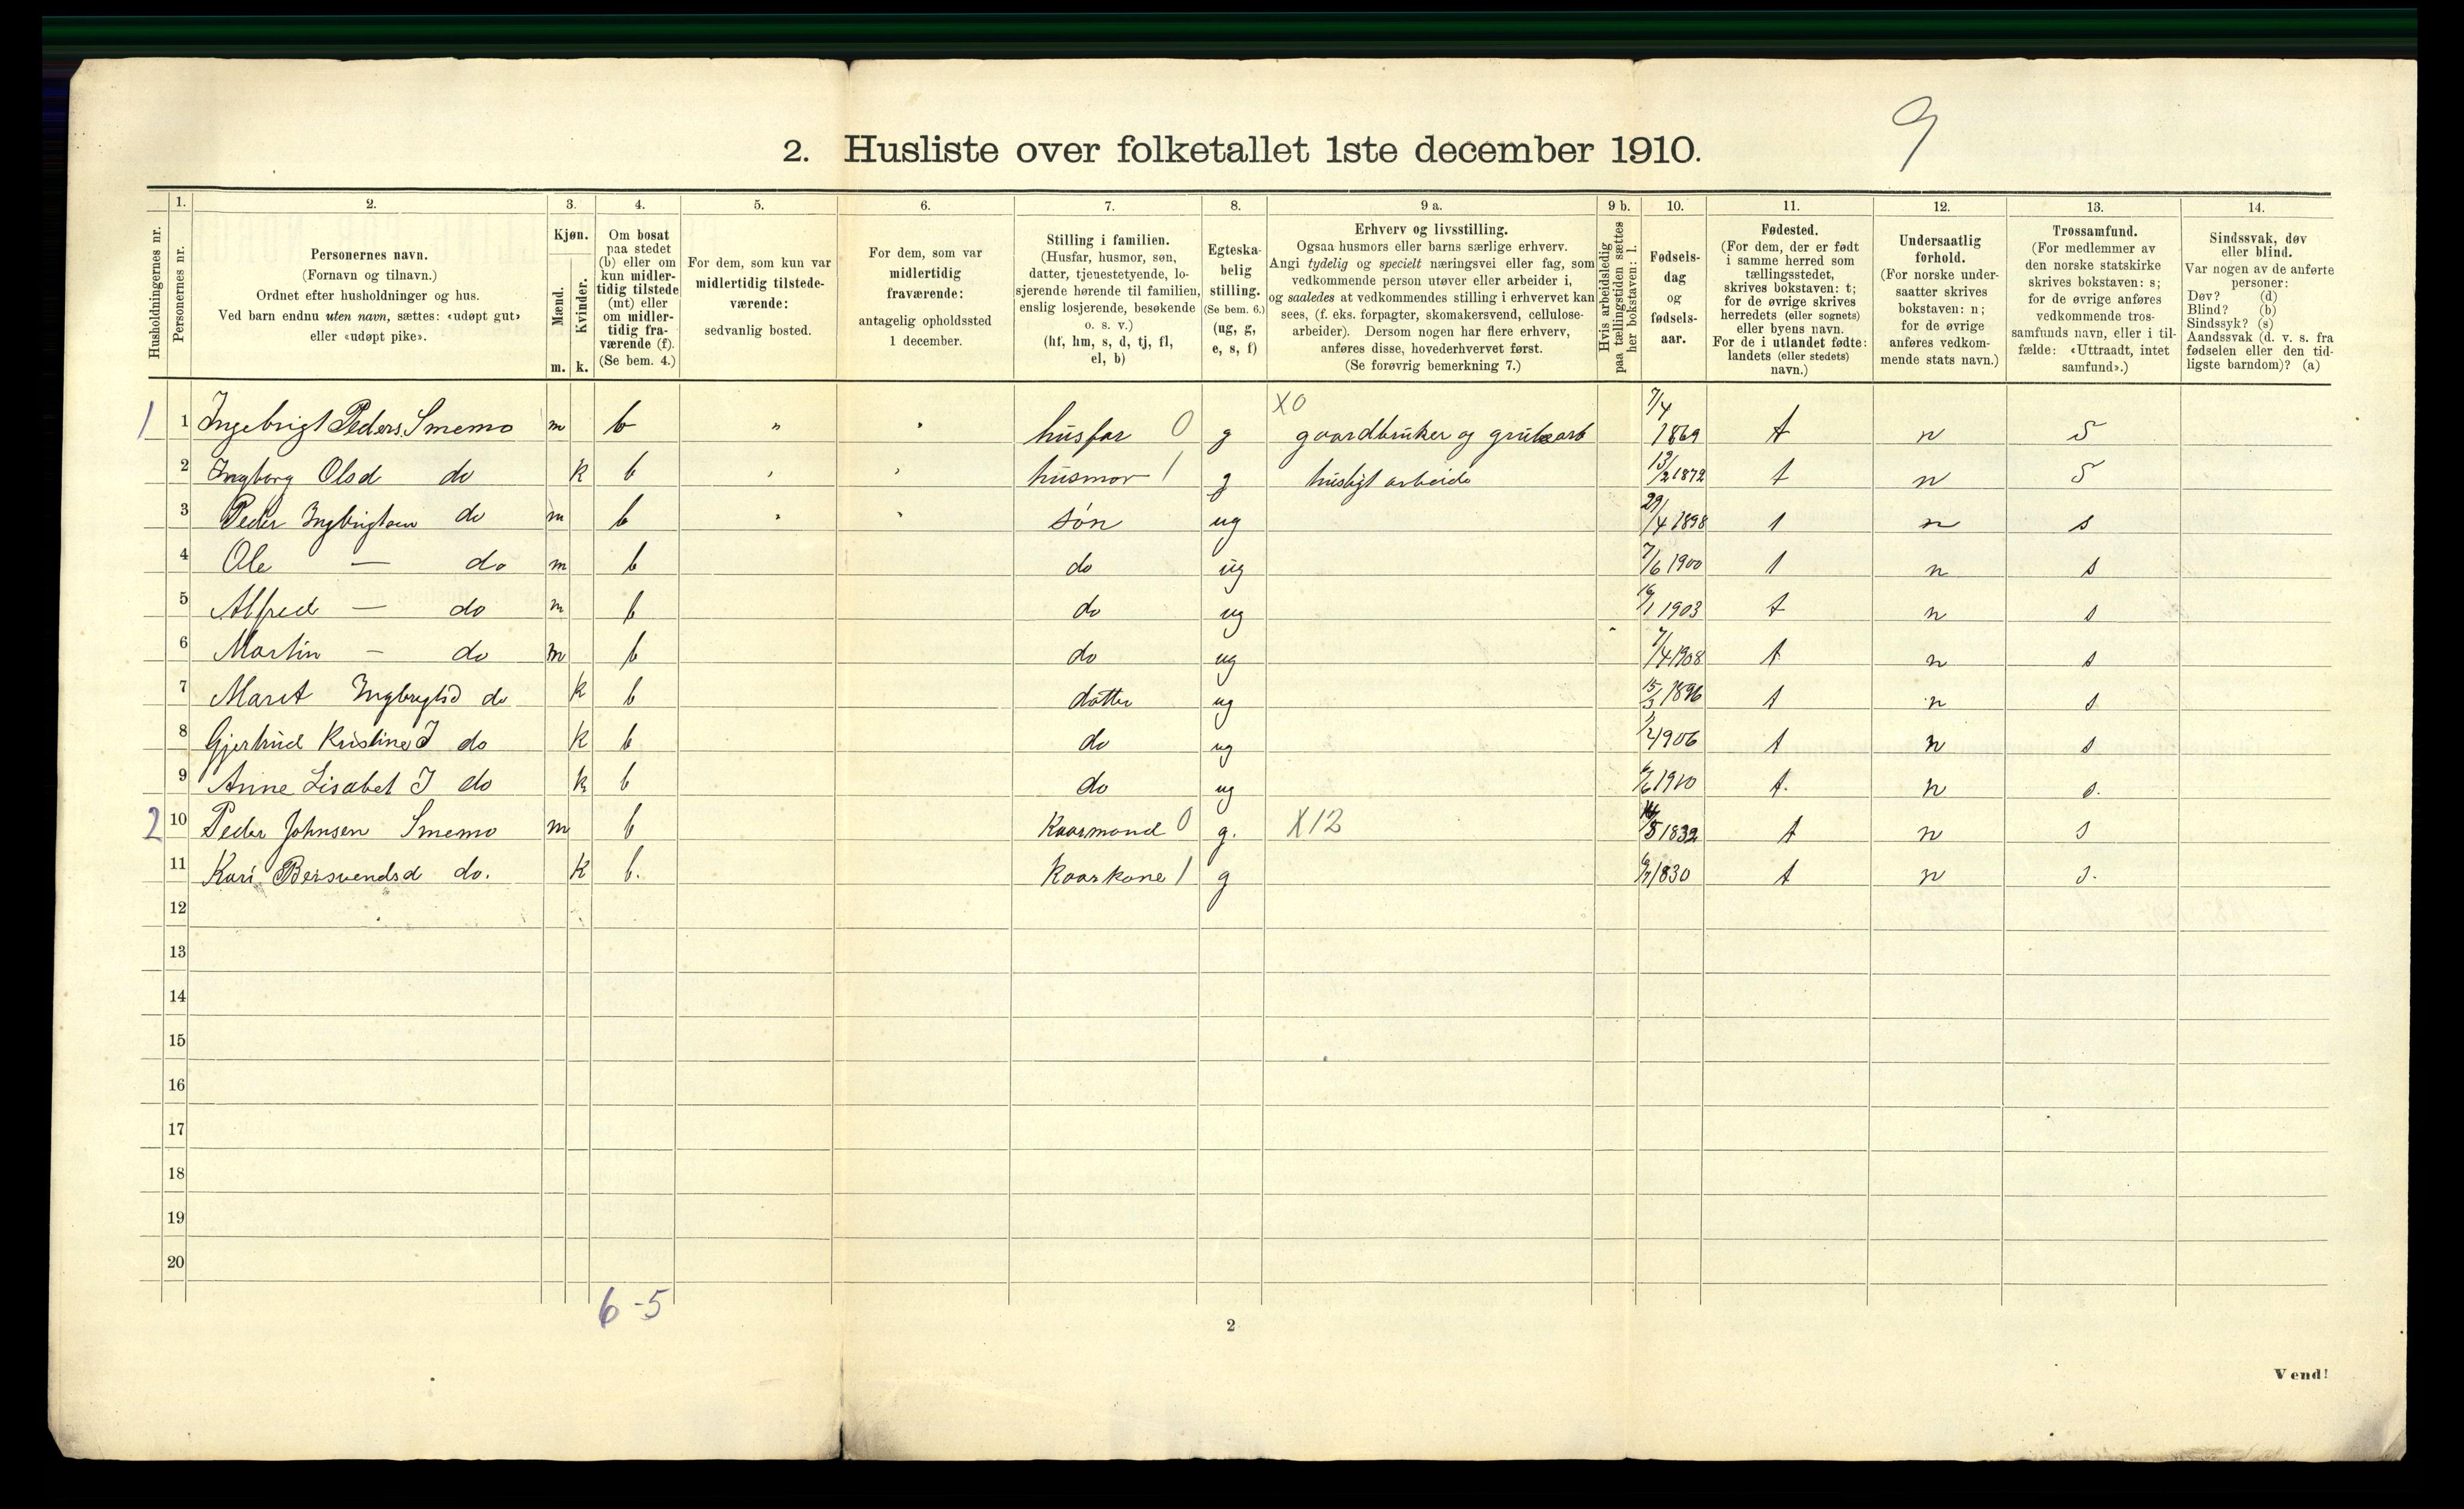 9
2. Husliste over folketallet 1ste december 1910.
1. 2. 3. 4. 5. 6. 7. 8. 9 a. 9 b. 10. 11. 12. 13. 14.
Husholdningernes nr.
Personernes nr.
Personernes navn.
(Fornavn og tilnavn.)
Ordnet efter husholdninger og hus.
Ved barn endnu uten navn, sættes: «udøpt gut»
eller «udøpt pike».
Kjøn.
Mænd.
Kvinder.
m. k.
Om bosat
paa stedet
(b) eller om
kun midler-
tidig tilstede
(mt) eller
om midler-
tidig fra-
værende (f).
(Se bem. 4.)
For dem, som kun var
midlertidig tilstede-
værende:
sedvanlig bosted.
For dem, som var
midlertidig
fraværende:
antagelig opholdssted
1 december.
Stilling i familien.
(Husfar, husmor, søn,
datter, tjenestetyende, lo-
sjerende hørende til familien,
enslig losjerende, besøkende
o. s. v.)
(hf, hm, s, d, tj, fl,
el, b)
Egteska-
belig
stilling.
(Se bem. 6.)
(ug, g,
e, s, f)
Erhverv og livsstilling.
Ogsaa husmors eller barns særlige erhverv.
Angi tydelig og specielt næringsvei eller fag, som
vedkommende person utøver eller arbeider i,
og saaledes at vedkommendes stilling i erhvervet kan
sees, (f. eks. forpagter, skomakersvend, cellulose-
arbeider). Dersom nogen har flere erhverv,
anføres disse, hovederhvervet først.
(Se forøvrig bemerkning 7.)
Hvis arbeidsledig
paa tællingstiden sættes
her bokstaven: l.
Fødsels-
dag
og
fødsels-
aar.
Fødested.
(For dem, der er født
i samme herred som
tællingsstedet,
skrives bokstaven: t;
for de øvrige skrives
herredets (eller sognets)
eller byens navn.
For de i utlandet fødte:
landets (eller stedets)
navn.)
Undersaatlig
forhold.
(For norske under-
saatter skrives
bokstaven: n;
for de øvrige
anføres vedkom-
mende stats navn.)
Trossamfund.
(For medlemmer av
den norske statskirke
skrives bokstaven: s;
for de øvrige anføres
vedkommende tros-
samfunds navn, eller i til-
fælde: «Uttraadt, intet
samfund».)
Sindssvak, døv
eller blind.
Var nogen av de anførte
personer:
Døv? (d)
Blind? (b)
Sindssyk? (s)
Aandssvak (d. v. s. fra
fødselen eller den tid-
ligste barndom)? (a)
X0
1 1 Ingebrigt Peders. Smemo m b " " husfar 0 g gaardbruker og grubearb 7/4 1869 t n S
2 Ingborg Olsd do k b husmor 1 g husligt arbeide 13/2 1872 t n S
3 Peder Ingbrigtsen do m b søn ug 29/4 1898 t n s
4 Ole — do m b do ug 7/6 1900 t n s
5 Alfred — do m b do ug 1903 t n s
6 Martin - do m b do ug 7/4 1908 t n s
7 Marit Ingbrigtsd do k b datter ug 15/3 1896 t n s
8 Gjertrud Kristine I do k b do ug 1906 t n s
9 Anne Lisabet I do k b do ug 1910 t. n s.
2 10 Peder Johnsen Smemo m b Kaarmand 0 g. X12 1832 t n s
11 Kari Bersvendsd do. k b. Kaarkone 1 g 1830 t n s.
12
13
14
15
16
17
18
19
20
6 - 5
2
Vend!